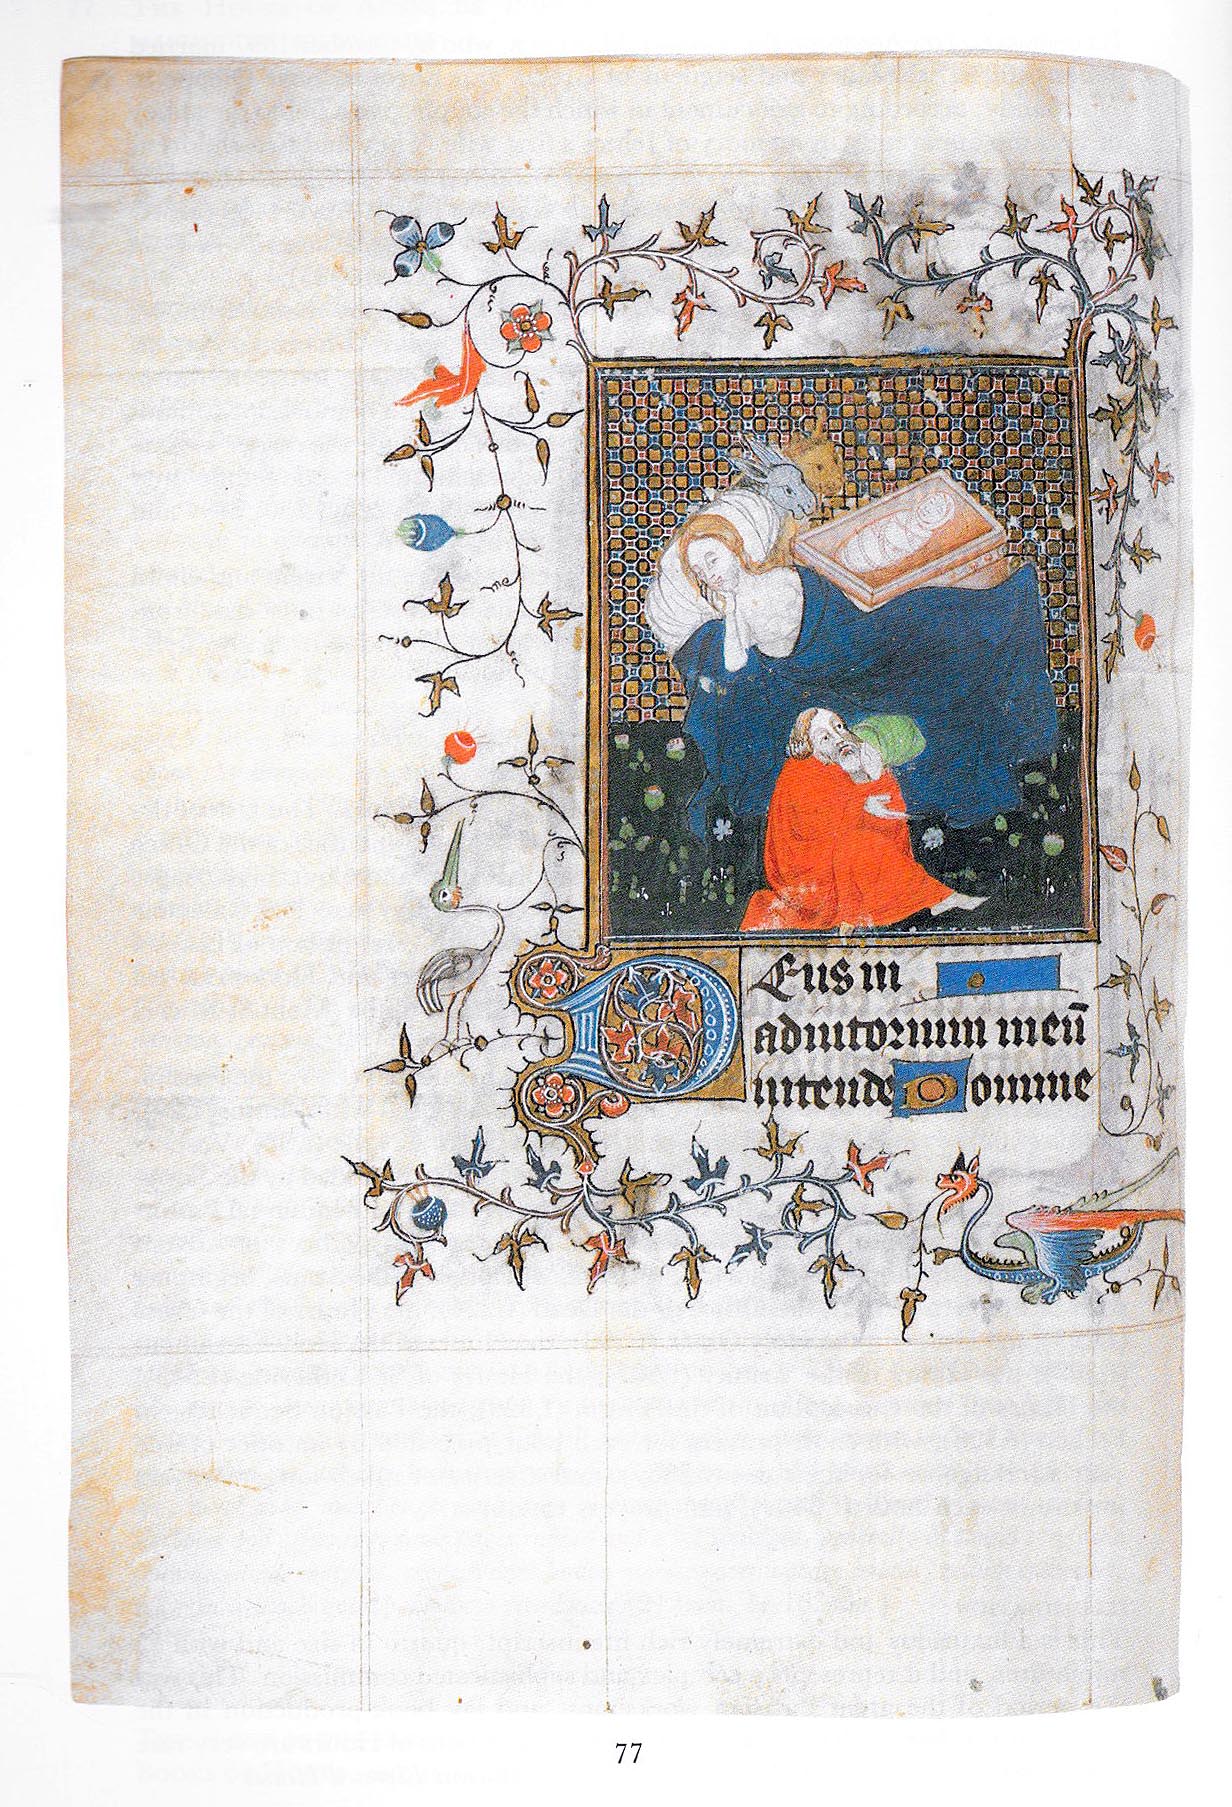 Deus in
adiutorium meū
intende Domine
77